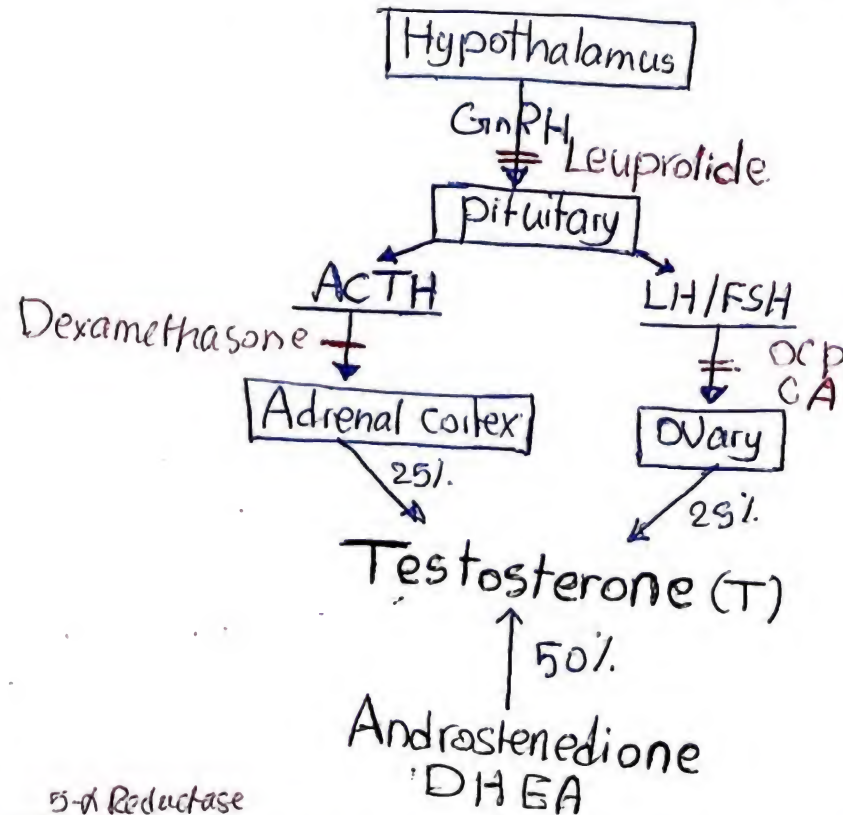 Hypothalamus
GnRH
Leuprolide
Pituitary
ACTH
LH/FSH
Dexamethasone
OCP
CA
Adrenal cortex
Ovary
25%
25%
Testosterone (T)
50%
Androstenedione
DHEA
5-α Reductase